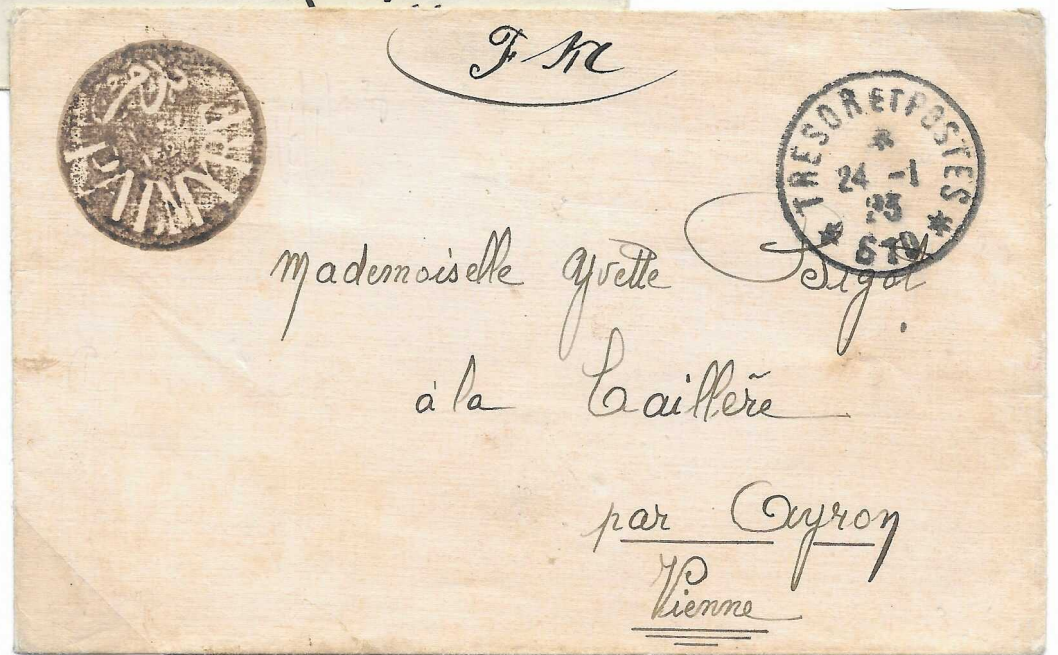 F M
TRESOR ET POSTES
24 -1
23
610
Mademoiselle Yvette Bigot
à la Taillère
par Ayron
Vienne